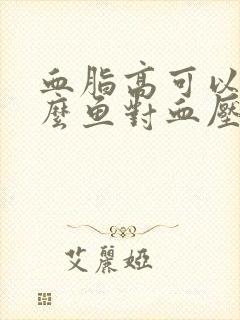 血脂高可以
麼鱼對血壓
艾麗婭